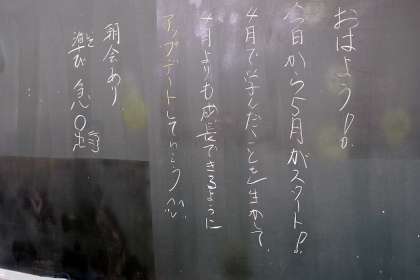 おはよう!!
今日から5月がスタート!!
4月で学んだことを生かして、
4月よりも成長できるように
アップデートしていこう
朝会あり
急